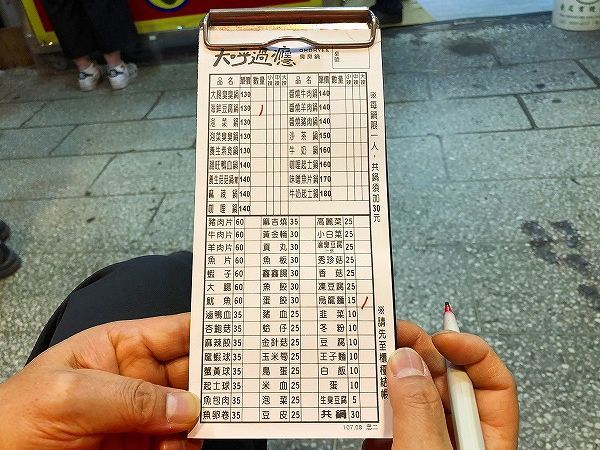 大呼過癮 OHOHYES 臭臭鍋 桌號
品名 單價 數量 小辣 中辣 大辣 品名 單價 數量 小辣 中辣 大辣
大腸臭臭鍋 130 醬燒牛肉鍋 140
海鮮豆腐鍋 130 醬燒羊肉鍋 140
泡菜鍋 130 醬燒豬肉鍋 140
泡菜臭臭鍋 130 沙茶鍋 150
養生素食鍋 130 牛奶鍋 160
鴨血鍋 140 咖哩起士鍋 160
養生菇菇鍋 140 味噌魚片鍋 170
麻辣鍋 140 牛奶起士鍋 180
咖哩鍋 140
※每鍋限一人,共鍋須加30元
豬肉片 60 麻吉燒 35 高麗菜 25
牛肉片 60 黃金輪 30 小白菜 25
羊肉片 60 貢丸 30 滷臭豆腐 25
魚片 60 魚板 30 秀珍菇 25
蝦子 60 鑫鑫腸 30 香菇 25
大腸 60 魚餃 30 凍豆腐 25
魷魚 60 蛋餃 30 烏龍麵 15
滷鴨血 35 豬血 30 韭菜 10
杏鮑菇 35 蛤仔 25 冬粉 10
麻辣餃 35 金針菇 25 豆腐 10
龍蝦球 35 玉米筍 25 王子麵 10
蟹黃球 35 鳥蛋 25 白飯 10
起士球 35 米血 25 蛋 10
魚包肉 35 泡菜 25 生臭豆腐 5
魚卵卷 35 豆皮 25 共鍋 30
※請先至櫃檯結帳
107.08 忠二